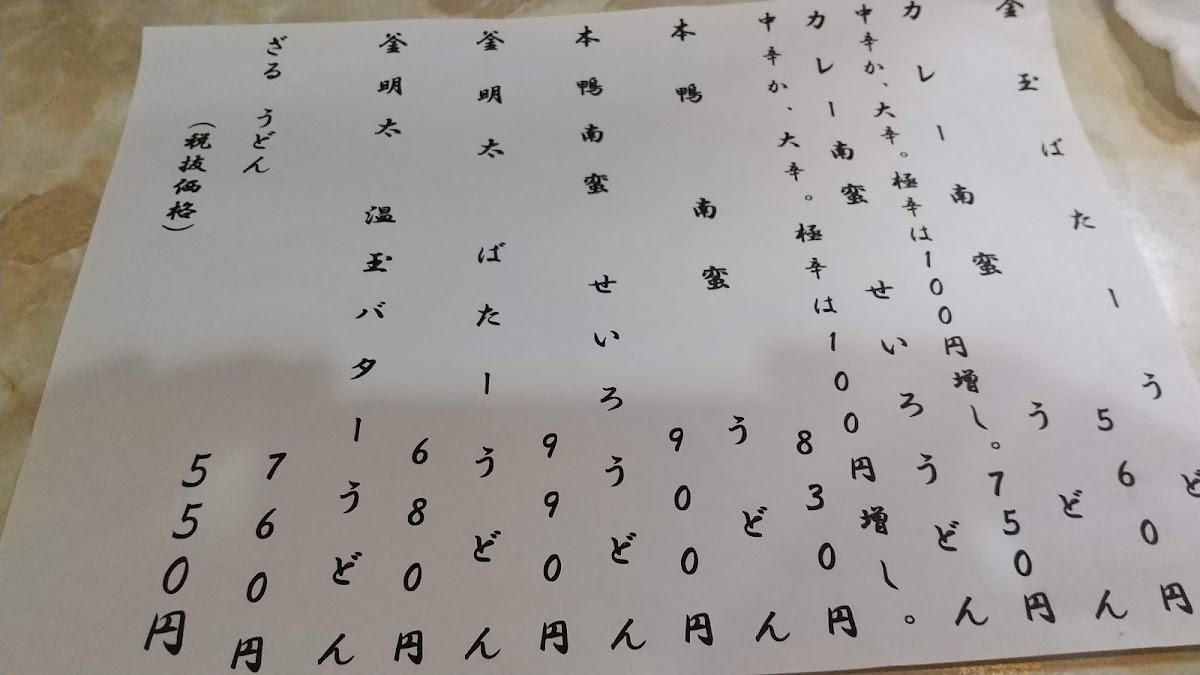 釜玉ばたーうど
560円
カレー南蛮うどん
750円
中辛か、大辛。極辛は100円増し。
カレー南蛮せいろうどん
830円
中辛か、大辛。極辛は100円増し。
本鴨南蛮うどん
900円
本鴨南蛮せいろうどん
990円
釜明太ばたーうどん
680円
釜明太 温玉バターうどん
760円
ざるうどん
550円
（税抜価格）